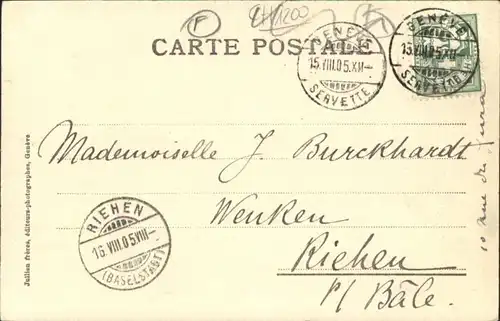 F
CH1200
CARTE POSTALE
GENÈVE
15.VIII.05.XII—
SERVETTE
GENÈVE
15.VIII.05.XII
SERVETTE
Mademoiselle J. Burckhardt
Wenken
Riehen
p/ Bâle.
RIEHEN
16.VIII.05.VIII—
(BASELSTADT)
10 rue du Jura
Jullien frères, éditeurs-photographes, Genève